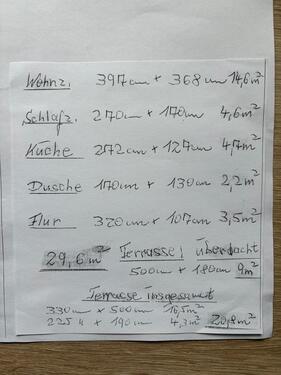 Wohnz. 397cm + 368cm 14,6m²
Schlafz. 270cm + 170cm 4,6m²
Küche 272cm + 127cm 4,7m²
Dusche 170cm + 130cm 2,2m²
Flur 320cm + 107cm 3,5m²
29,6m² Terrasse: überdacht
500cm + 180cm 9m²
Terrasse insgesamt
330cm x 500cm 16,5m²
225 " x 190cm 4,3m² 20,8m²